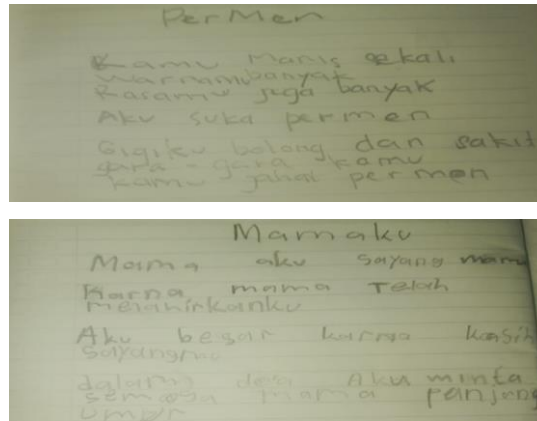 PerMen
Kamu Manis sekali
Warnamu banyak
Rasamu juga banyak
Aku suka permen
Gigiku bolong dan sakit
gara-gara kamu
kamu jahat permen
Mamaku
Mama aku sayang mama
Karna mama Telah
melahirkanku
Aku besar karna kasih
sayangmu
dalam doa Aku minta
semoga mama panjang
umur